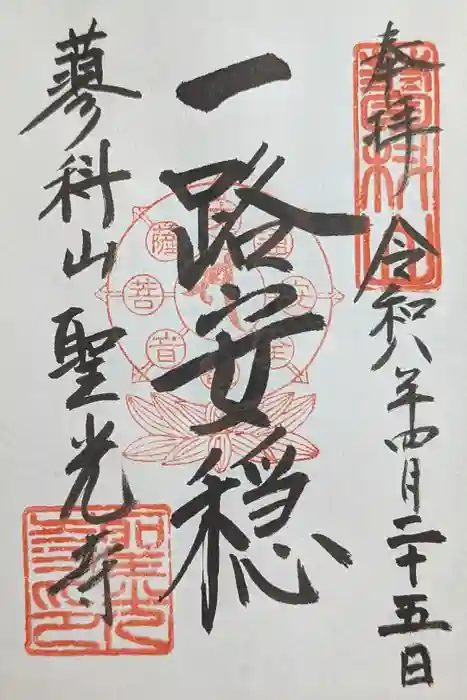 奉拝 令和八年四月二十五日
一路安穏
蓼科山 聖光寺
蓼科山